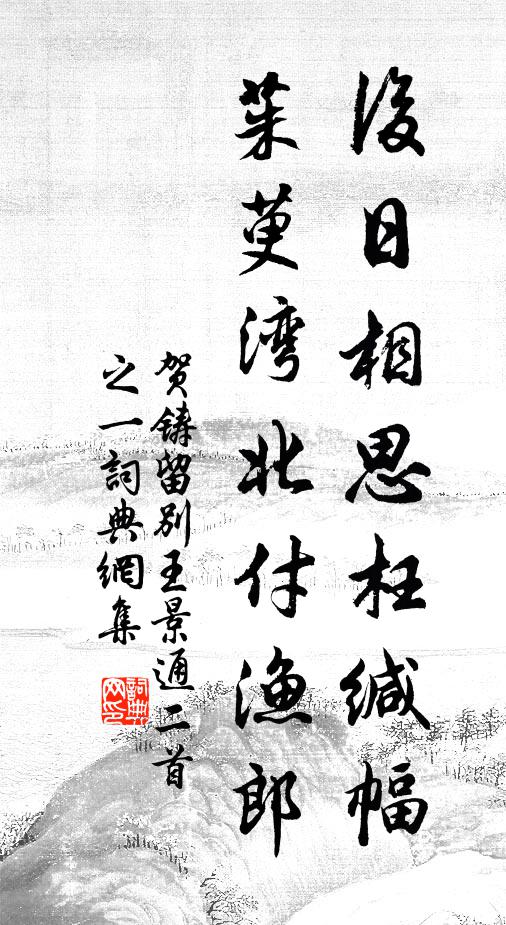 後日相思枉緘幅
茱萸灣北付漁郎
賀鑄留別王景通二首
之一詞典網集
詞典網印